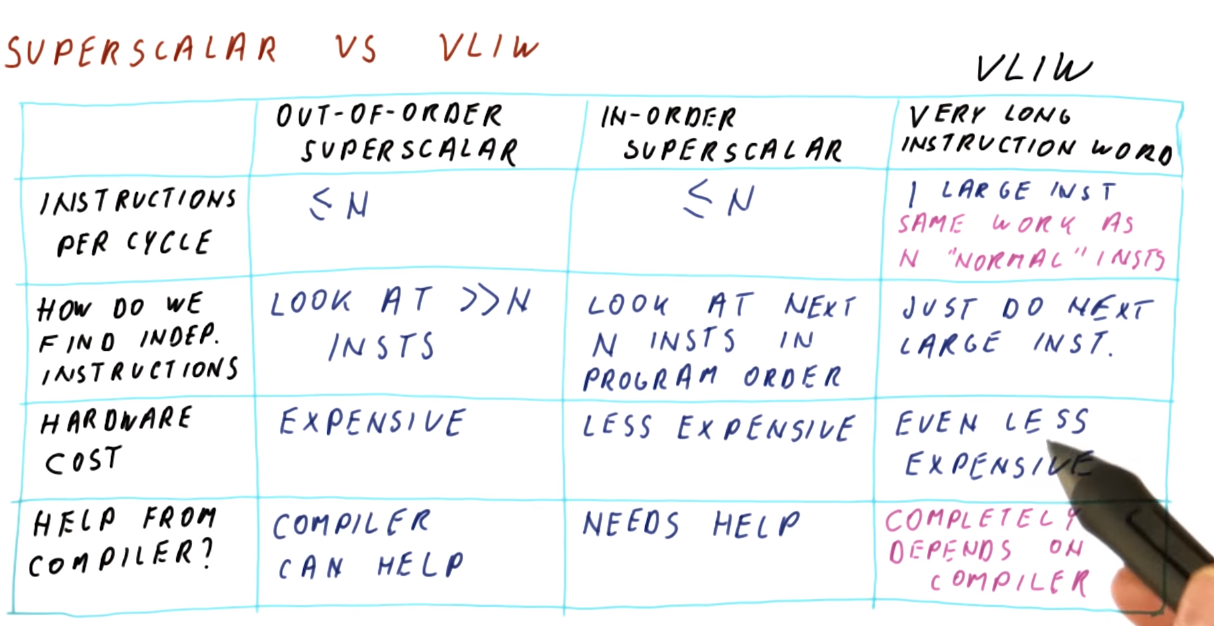 SUPERSCALAR VS VLIW
VLIW
OUT-OF-ORDER
SUPERSCALAR
IN-ORDER
SUPERSCALAR
VERY LONG
INSTRUCTION WORD
INSTRUCTIONS
PER CYCLE
≤ N
≤ N
1 LARGE INST
SAME WORK AS
N "NORMAL" INSTS
HOW DO WE
FIND INDEP.
INSTRUCTIONS
LOOK AT >>N
INSTS
LOOK AT NEXT
N INSTS IN
PROGRAM ORDER
JUST DO NEXT
LARGE INST.
HARDWARE
COST
EXPENSIVE
LESS EXPENSIVE
EVEN LESS
EXPENSIVE
HELP FROM
COMPILER?
COMPILER
CAN HELP
NEEDS HELP
COMPLETELY
DEPENDS ON
COMPILER